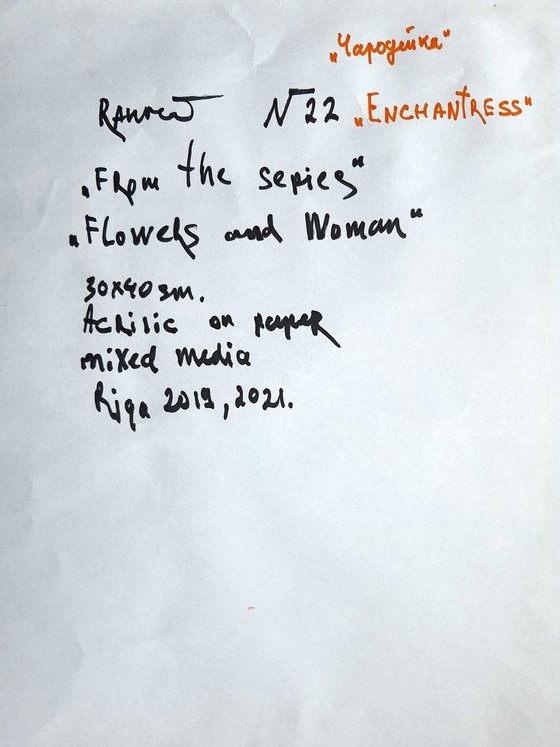 „Чародейка“
№ 22 „ENCHANTRESS“
„From the series“
„Flowers and Woman“
30x40 sm.
Acrilic on paper
mixed media
Riga 2019, 2021.